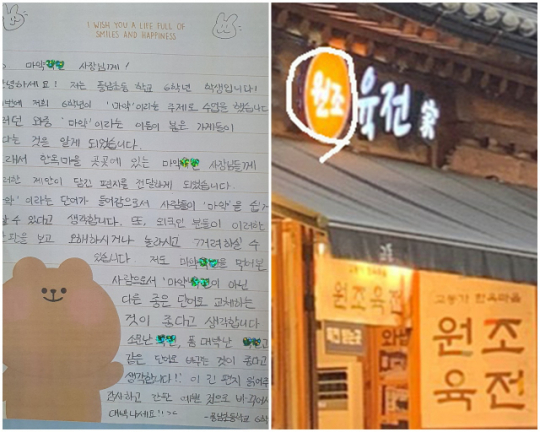 I WISH YOU A LIFE FULL OF
SMILES AND HAPPINESS
마약 사장님께!
녕하세요! 저는 풍남초등 학교 6학년 학생입니다!
번에 저희 6학년이 '마약'이라는 주제로 수업을 했습니다
러던 와중 '마약'이라는 이름이 붙은 가게들이
다는 것을 알게 되었습니다.
래서 한옥마을 곳곳에 있는 마약 사장님들께
러한 제안이 담긴 편지를 전달하게 되었습니다.
약'이라는 단어가 들어감으로서 사람들이 '마약'을 쉽게
할 수 있다고 생각합니다. 또, 외국인 분들이 이러한
판을 보고 오해하시거나 놀라시고 꺼려하실 수
있습니다. 저도 마약 을 먹어본
사람으로서 '마약 이 아닌
다른 좋은 단어로 교체하는
것이 좋다고 생각합니다
소문난 대박난
같은 단어로 바꾸는 것이 좋다고
생각합니다! 이 긴 편지 읽어주
감사하고 간판 예쁜 바꾸어서
대박나세요! ^^ -풍남초등학교 6학
원조 육전 家
원조육전
한옥마을
원조
육전